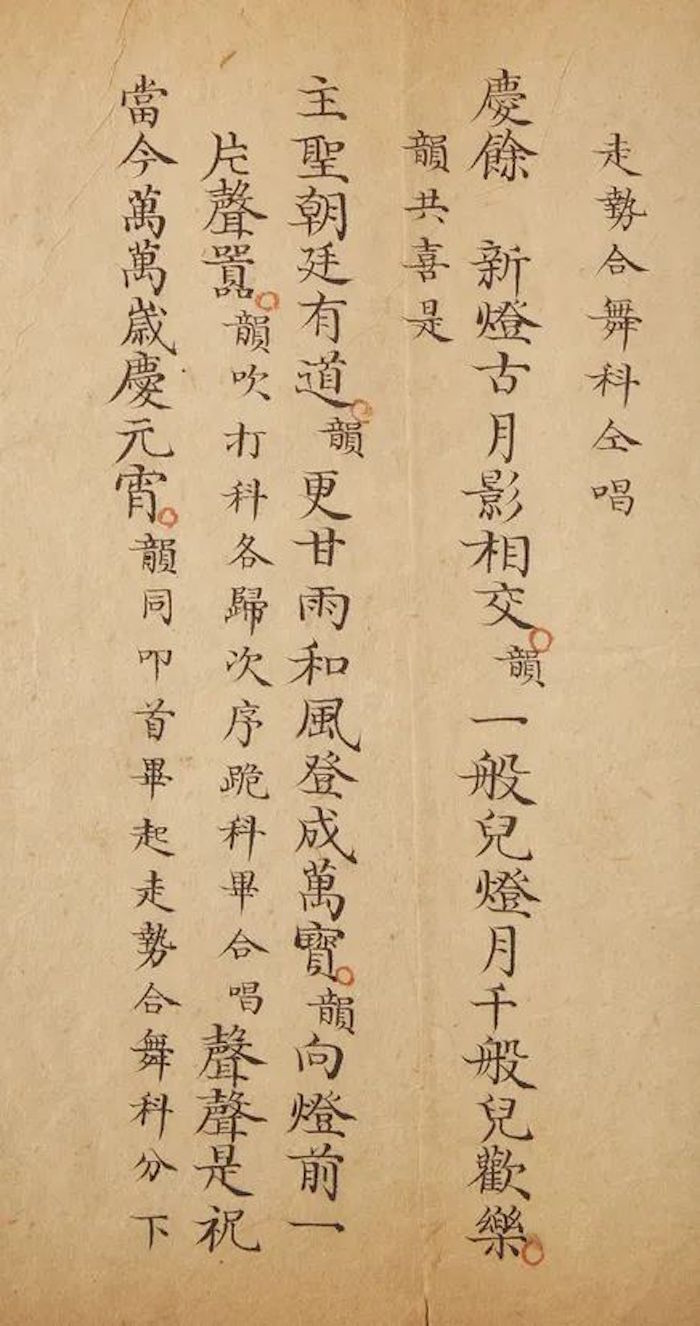 走勢合舞科仝唱
慶餘 新燈古月影相交韻一般兒燈月千般兒歡樂
韻共喜是
主聖朝廷有道韻更甘雨和風登成萬寶韻向燈前一
片聲囂韻吹打科各歸次序跪科畢合唱聲聲是祝
當今萬萬歲慶元宵韻同叩首畢起走勢合舞科分下